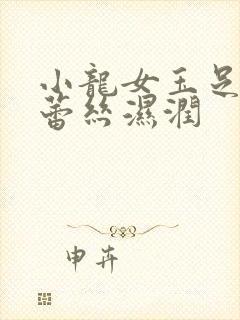 小龍女玉足
蕾丝濕潤
申卉